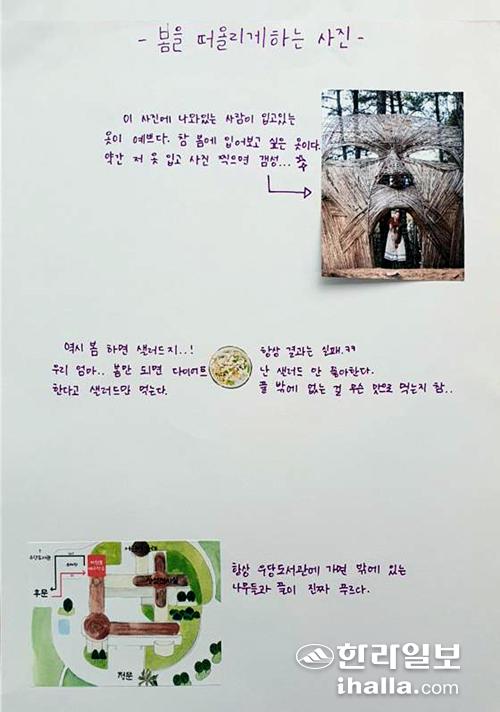 - 봄을 떠올리게하는 사진 -
이 사진에 나와있는 사람이 입고있는
옷이 예쁘다. 참 봄에 입어보고 싶은 옷이다.
약간 저 옷 입고 사진 찍으면 갬성...
역시 봄 하면 샐러드지..!
우리 엄마.. 봄만 되면 다이어트
한다고 샐러드만 먹는다.
항상 결과는 실패.ㅋㅋ
난 샐러드 안 좋아한다.
풀 밖에 없는 걸 무슨 맛으로 먹는지 참..
후문
정문
항상 우당도서관에 가면 밖에 있는
나무들과 풀이 진짜 푸르다.
한라일보
ihalla.com